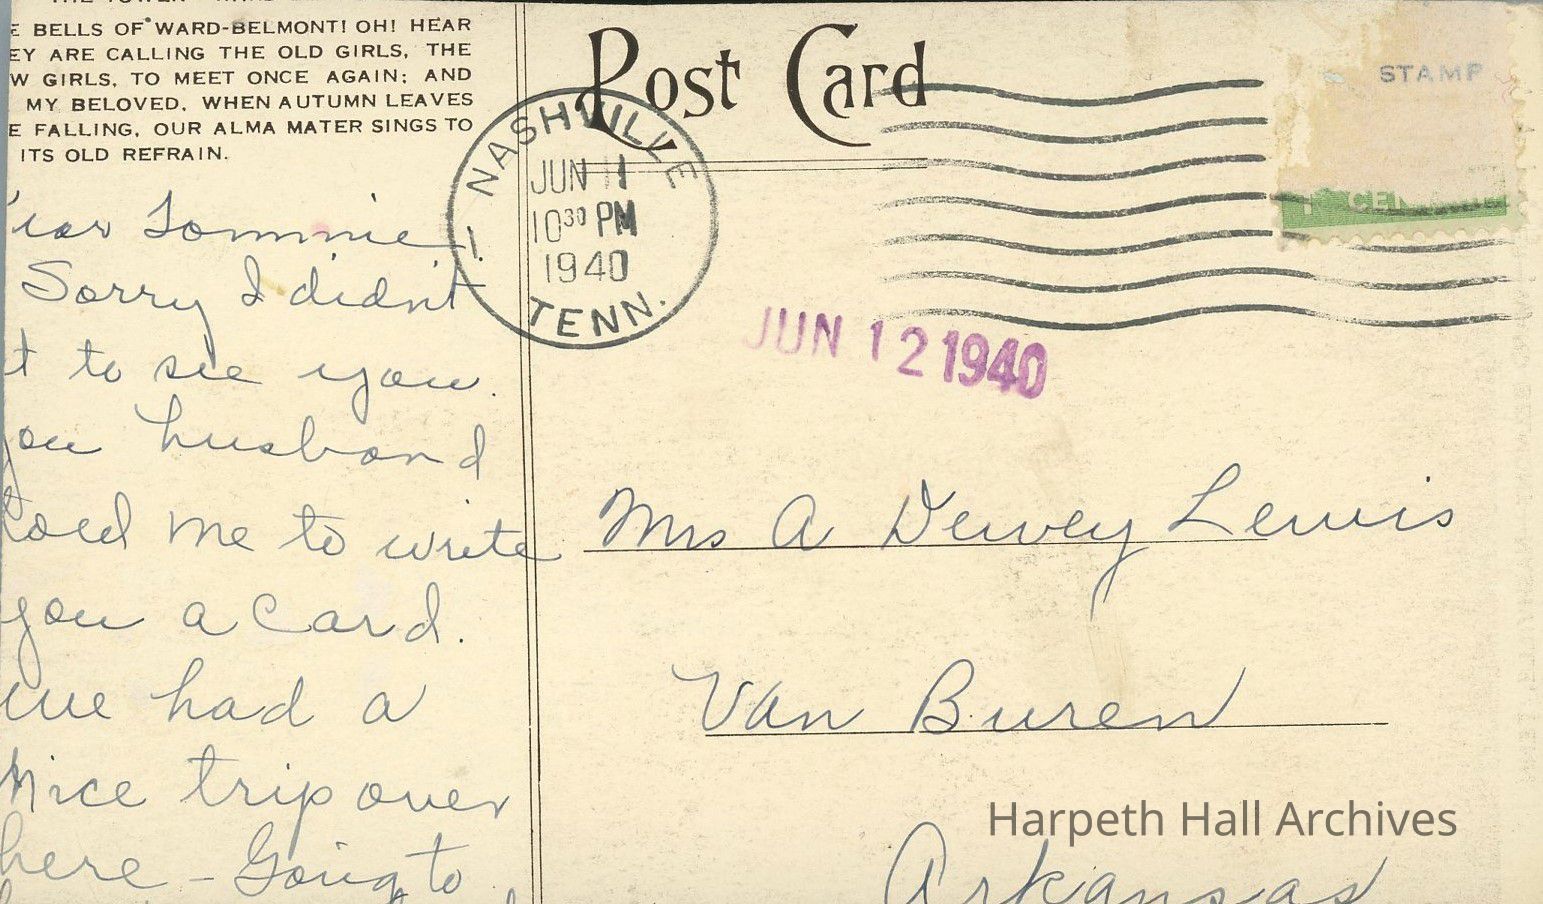 BELLS OF WARD-BELMONT! OH! HEAR
EY ARE CALLING THE OLD GIRLS, THE
W GIRLS, TO MEET ONCE AGAIN; AND
MY BELOVED, WHEN AUTUMN LEAVES
E FALLING, OUR ALMA MATER SINGS TO
ITS OLD REFRAIN.
ear Tommie
Sorry I didn't
t to see you.
you husband
toed me to write
you a card.
we had a
nice trip over
here - Going to
Post Card
NASHVILLE
1
JUN 11
10 30 PM
1940
TENN.
STAMP
1¢ CENT
JUN 12 1940
Mrs A Dewey Lewis
Van Buren
Arkansas
Harpeth Hall Archives